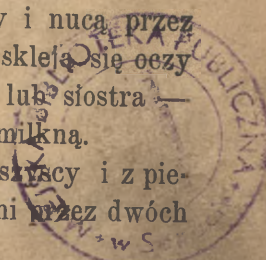 y i nucą przez
skleją się oczy
lub siostra —
milkną.
szyscy i z pie-
ni przez dwóch
BIBLIOTEKA PUBLICZNA
w S